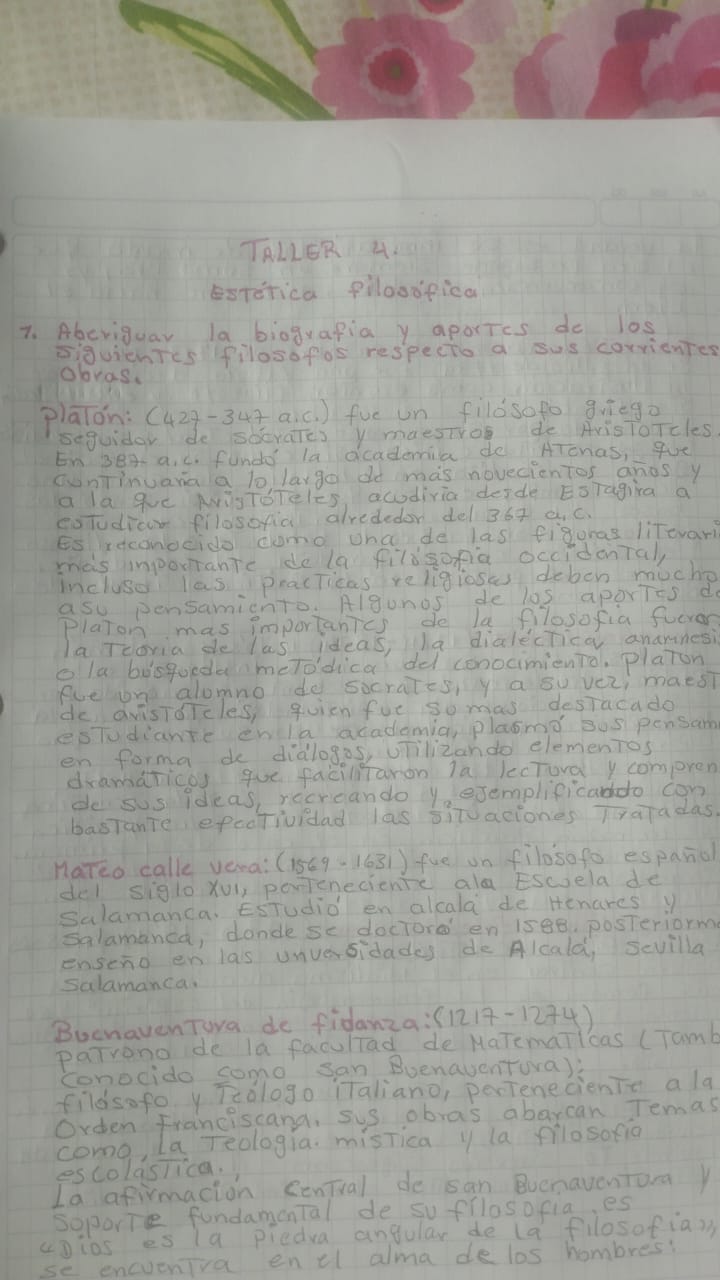 TALLER 4.
Estética filosófica
1. Aberiguar la biografia y aportes de los
siguientes filosofos respecto a sus corrientes
obras.
Platón: (427-347 a.c.) fue un filósofo griego
seguidor de sócrates y maestros de Aristoteles.
En 387 a.c. fundó la academia de Atenas, que
continuaria a lo largo de más novecientos años y
a la que Aristóteles, acudiria desde Estagira a
estudiar filosofia alrededor del 367 a.c.
Es reconocido como una de las figuras literari
más importante de la filosofia occidental,
incluso las practicas religiosas deben mucho
asu pensamiento. Algunos de los aportes de
Platon mas importantes de la filosofia fueron
la Teoria de las ideas, la dialéctica, anamnesi
o la búsqueda metódica del conocimiento. Platon
fue un alumno de socrates, y a su vez, maest
de aristóteles, quien fue so mas destacado
estudiante en la academia, plasmó sus pensam
en forma de dialogos, utilizando elementos
dramáticos que facilitaron la lectura y compren
de sus ideas, recreando y ejemplificando con
bastante efectividad las situaciones tratadas.
Mateo calle vera: (1569-1631) fue un filosofo español
del siglo XVI, perteneciente ala Escuela de
Salamanca. Estudió en alcalá de Henares y
Salamanca, donde se doctoró en 1588. posteriorm
enseño en las unversidades de Alcalá, Sevilla
Salamanca.
Buenaventura de fidanza: (1217-1274)
patrono de la facultad de Matematicas (Tamb
conocido como san Buenaventura);
filósofo y Teólogo italiano, perteneciente a la
Orden Franciscana. sus obras abarcan Temas
como, la Teologia. mistica y la filosofia
escolástica.,
La afirmación central de san Buenaventura y
soporte fundamental de su filosofia, es
"Dios es la piedra angular de la filosofia",
se encuentra en el alma de los hombres: